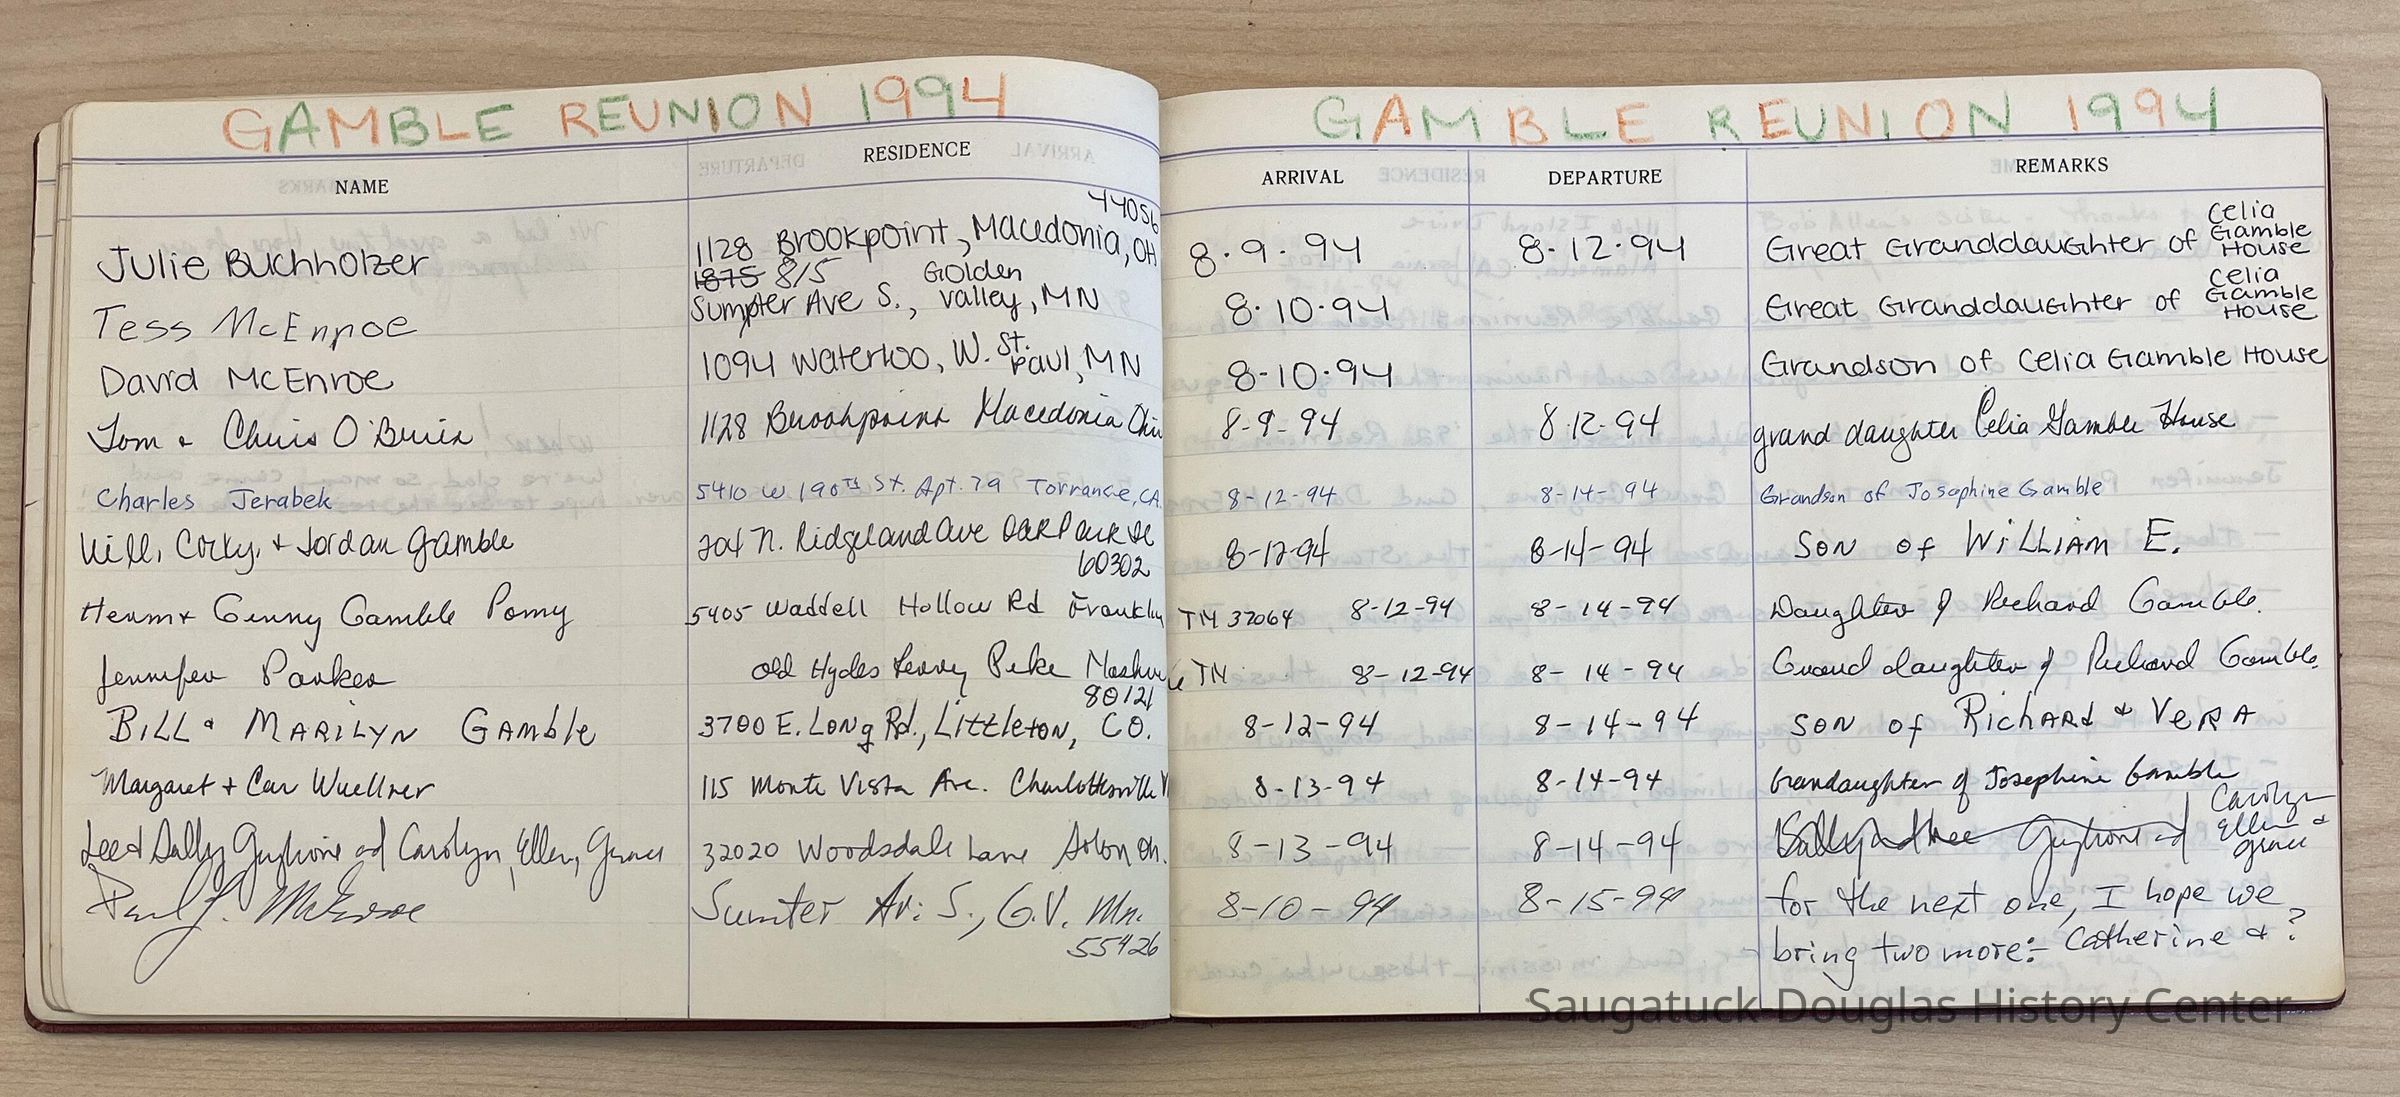 GAMBLE REUNION 1994 GAMBLE REUNION 1994
NAME RESIDENCE ARRIVAL DEPARTURE REMARKS
44056 Celia
Julie Buchholzer 1128 Brookpoint, Macedonia, OH 8.9.94 8.12.94 Great Granddaughter of Gamble House
1875 815 Golden Celia
Tess McEnroe Sumpter Ave S., Valley, MN 8.10.94 Great Granddaughter of Gamble House
David McEnroe 1094 Waterloo, W. St. Paul, MN 8-10-94 Grandson of Celia Gamble House
Tom + Chris O'Brien 1128 Brookpoint Macedonia Ohio 8-9-94 8-12-94 grand daughter Celia Gamble House
Charles Jerabek 5410 W 190th St. Apt. 79 Torrance, CA. 8-12-94 8-14-94 Grandson of Josephine Gamble
Will, Corky, + Jordan Gamble 204 N. Ridgeland Ave Oak Park Il 8-12-94 8-14-94 SON of WiLLIAM E.
60302
Genny Gamble Pomy 5405 Waddell Hollow Rd Franklin TN 37064 8-12-94 8-14-94 Daughter of Richard Gamble.
Jennifer Parker Old Hydes Ferry Pike Nashville TN 8-12-94 8-14-94 Grand daughter of Richard Gamble.
80121
BiLL + MARiLYN GAMble 3700 E. Long Rd., LittletoN, CO. 8-12-94 8-14-94 SON of RichARd + VeRA
Margaret + Carr Wuellner 115 Monte Vista Ave. Charlottesville 8-13-94 8-14-94 Grandaughter of Josephine Gamble
Carolyn
Lee + Sally and Carolyn, Ellen, Grace 32020 Woodsdale Lane Solon Oh. 8-13-94 8-14-94 Ellen + Grace
Paul J. McEnroe Sumter Av. S., G.V. Mn. 8-10-94 8-15-94 for the next one, I hope we
55426 bring two more:- Catherine + ?
Saugatuck-Douglas History Center